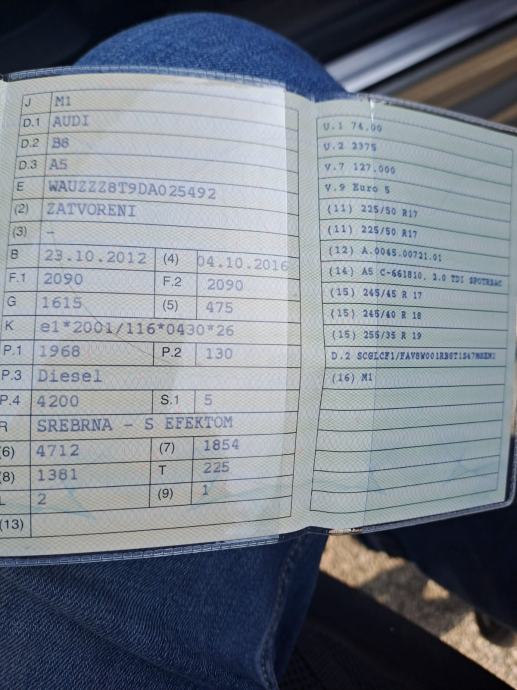 J M1
D.1 AUDI
D.2 B8
D.3 A5
E WAUZZZ8T9DA025492
(2) ZATVORENI
(3) -
B 23.10.2012 (4) 04.10.2016
F.1 2090 F.2 2090
G 1615 (5) 475
K e1*2001/116*0430*26
P.1 1968 P.2 130
P.3 Diesel
P.4 4200 S.1 5
R SREBRNA - S EFEKTOM
(6) 4712 (7) 1854
(8) 1381 T 225
L 2 (9) 1
(13)
U.1 74.00
U.2 2375
V.7 127.000
V.9 Euro 5
(11) 225/50 R17
(11) 225/50 R17
(12) A.0045.00721.01
(14) A5 C-661810, 2.0 TDI SPORTBAC
(15) 245/45 R 17
(15) 245/40 R 18
(15) 255/35 R 19
D.2
(16) M1